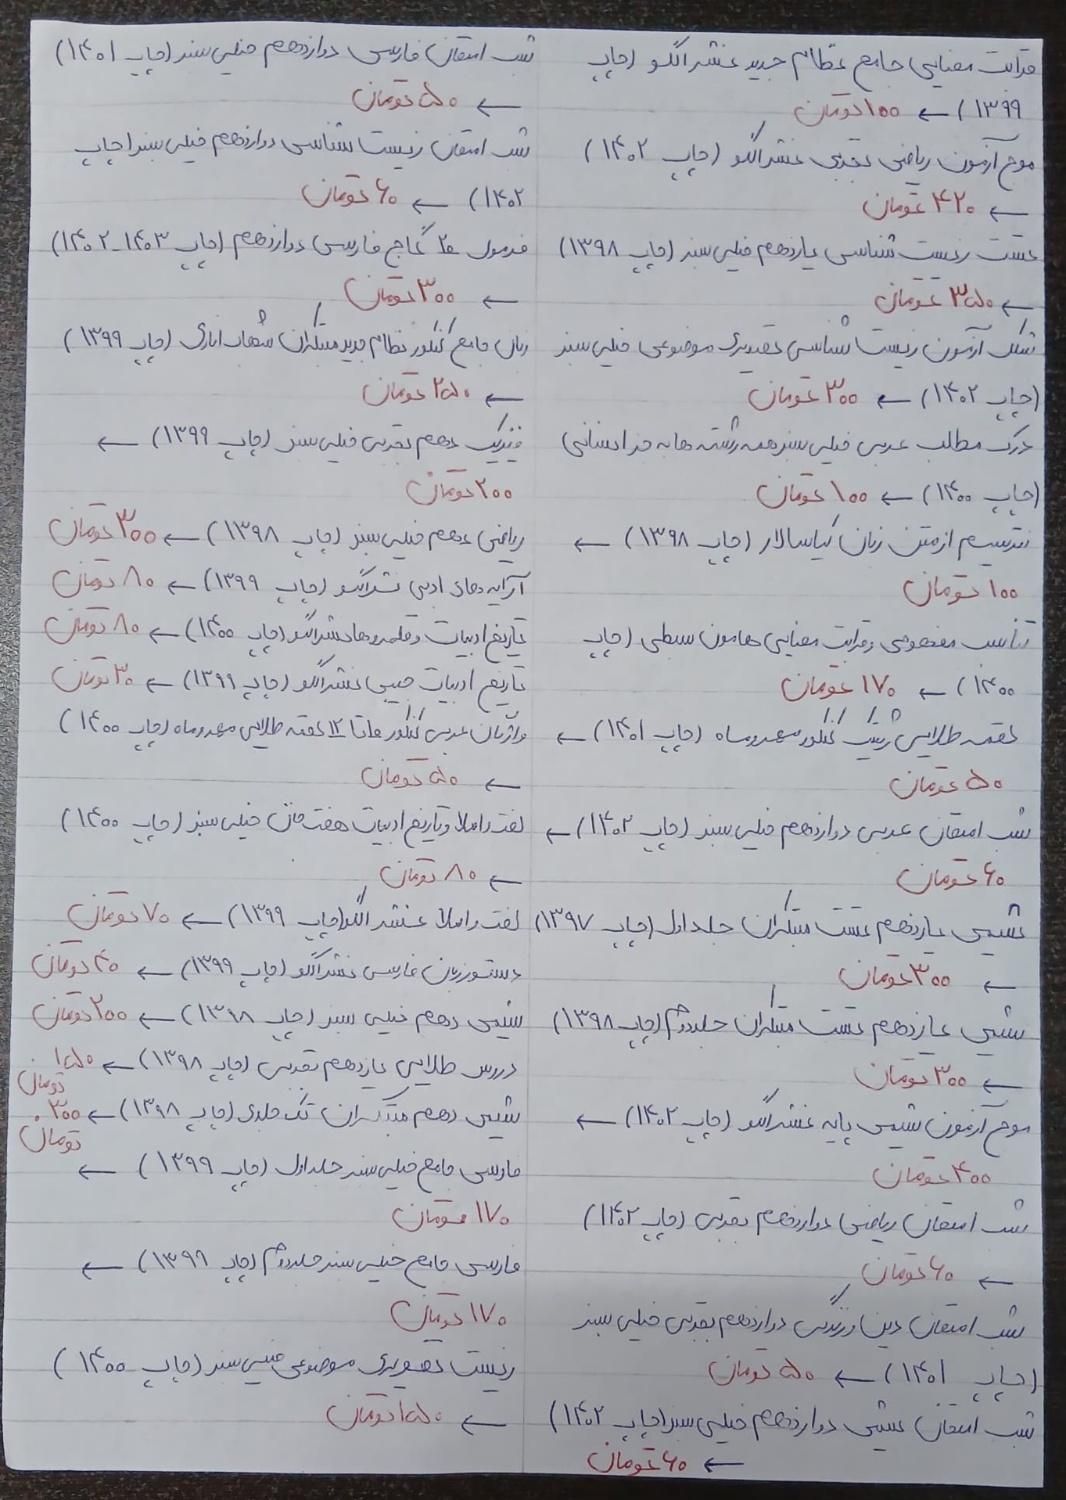 قرابت معنایی جامع نظام جدید نشر الگو (چاپ
۱۳۹۹) ← ۱۰۰ تومان
موج آزمون ریاضی تجربی نشر الگو (چاپ ۱۴۰۲)
← ۴۲۰ تومان
تست زیست شناسی یازدهم خیلی سبز (چاپ ۱۳۹۸)
← ۳۵۰ تومان
آزمون زیست شناسی تصویری موضوعی خیلی سبز
(چاپ ۱۴۰۲) ← ۳۰۰ تومان
درک مطلب عربی خیلی سبز همه رشته ها به جز انسانی
(چاپ ۱۴۰۰) ← ۱۰۰ تومان
نترسیم از متن زبان کیاسالار (چاپ ۱۳۹۸) ←
۱۰۰ تومان
تناسب مفهومی و قرابت معنایی هامون سبطی (چاپ
۱۴۰۰) ← ۱۷۰ تومان
لقمه طلایی ژنتیک کنکور مهروماه (چاپ ۱۴۰۱) ←
۵۰ تومان
شب امتحان عربی دوازدهم خیلی سبز (چاپ ۱۴۰۲) ←
۶۰ تومان
شیمی یازدهم تست مبتکران جلد اول (چاپ ۱۳۹۷)
← ۳۰۰ تومان
شیمی یازدهم تست مبتکران جلد دوم (چاپ ۱۳۹۸)
← ۳۰۰ تومان
موج آزمون شیمی پایه نشر الگو (چاپ ۱۴۰۲) ←
۴۰۰ تومان
شب امتحان ریاضی دوازدهم تجربی (چاپ ۱۴۰۲)
← ۶۰ تومان
شب امتحان دین و زندگی دوازدهم تجربی خیلی سبز
(چاپ ۱۴۰۱) ← ۵۰ تومان
شب امتحان شیمی دوازدهم خیلی سبز (چاپ ۱۴۰۲)
← ۶۰ تومان
شب امتحان فارسی دوازدهم خیلی سبز (چاپ ۱۴۰۱)
← ۵۰ تومان
شب امتحان زیست شناسی دوازدهم خیلی سبز (چاپ
۱۴۰۲) ← ۶۰ تومان
فرمول ۲۰ گاج فارسی دوازدهم (چاپ ۱۴۰۳-۱۴۰۲)
← ۳۰۰ تومان
زبان جامع کنکور نظام جدید مبتکران شهاب اناری (چاپ ۱۳۹۹)
← ۲۵۰ تومان
فیزیک دهم تجربی خیلی سبز (چاپ ۱۳۹۹) ←
۲۰۰ تومان
ریاضی دهم خیلی سبز (چاپ ۱۳۹۸) ← ۳۰۰ تومان
آرایه های ادبی نشر الگو (چاپ ۱۳۹۹) ← ۸۰ تومان
تاریخ ادبیات و قلمروها نشر الگو (چاپ ۱۴۰۰) ← ۸۰ تومان
تاریخ ادبیات جیبی نشر الگو (چاپ ۱۳۹۹) ← ۳۰ تومان
واژگان عربی کنکور ۱۰ تا ۱۲ لقمه طلایی مهروماه (چاپ ۱۴۰۰)
← ۵۰ تومان
لغت و املا و تاریخ ادبیات هفت خان خیلی سبز (چاپ ۱۴۰۰)
← ۸۰ تومان
لغت و املا نشر الگو (چاپ ۱۳۹۹) ← ۷۰ تومان
دستور زبان فارسی نشر الگو (چاپ ۱۳۹۹) ← ۴۰ تومان
شیمی دهم خیلی سبز (چاپ ۱۳۹۸) ← ۲۰۰ تومان
دروس طلایی یازدهم تجربی (چاپ ۱۳۹۸) ← ۱۵۰ تومان
شیمی دهم مبتکران تک جلدی (چاپ ۱۳۹۸) ← ۳۰۰ تومان
فارسی جامع خیلی سبز جلد اول (چاپ ۱۳۹۹) ←
۱۷۰ تومان
فارسی جامع خیلی سبز جلد دوم (چاپ ۱۳۹۹) ←
۱۷۰ تومان
زیست تصویری موضوعی خیلی سبز (چاپ ۱۴۰۰)
← ۱۵۰ تومان